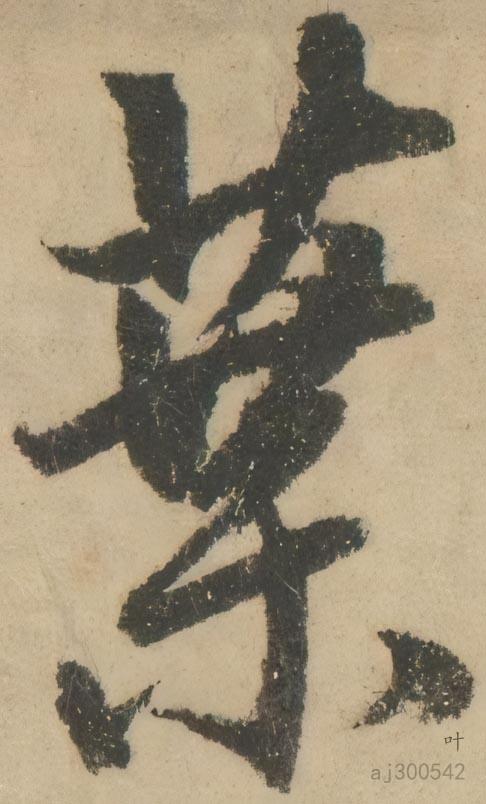 葉
叶
aj300542